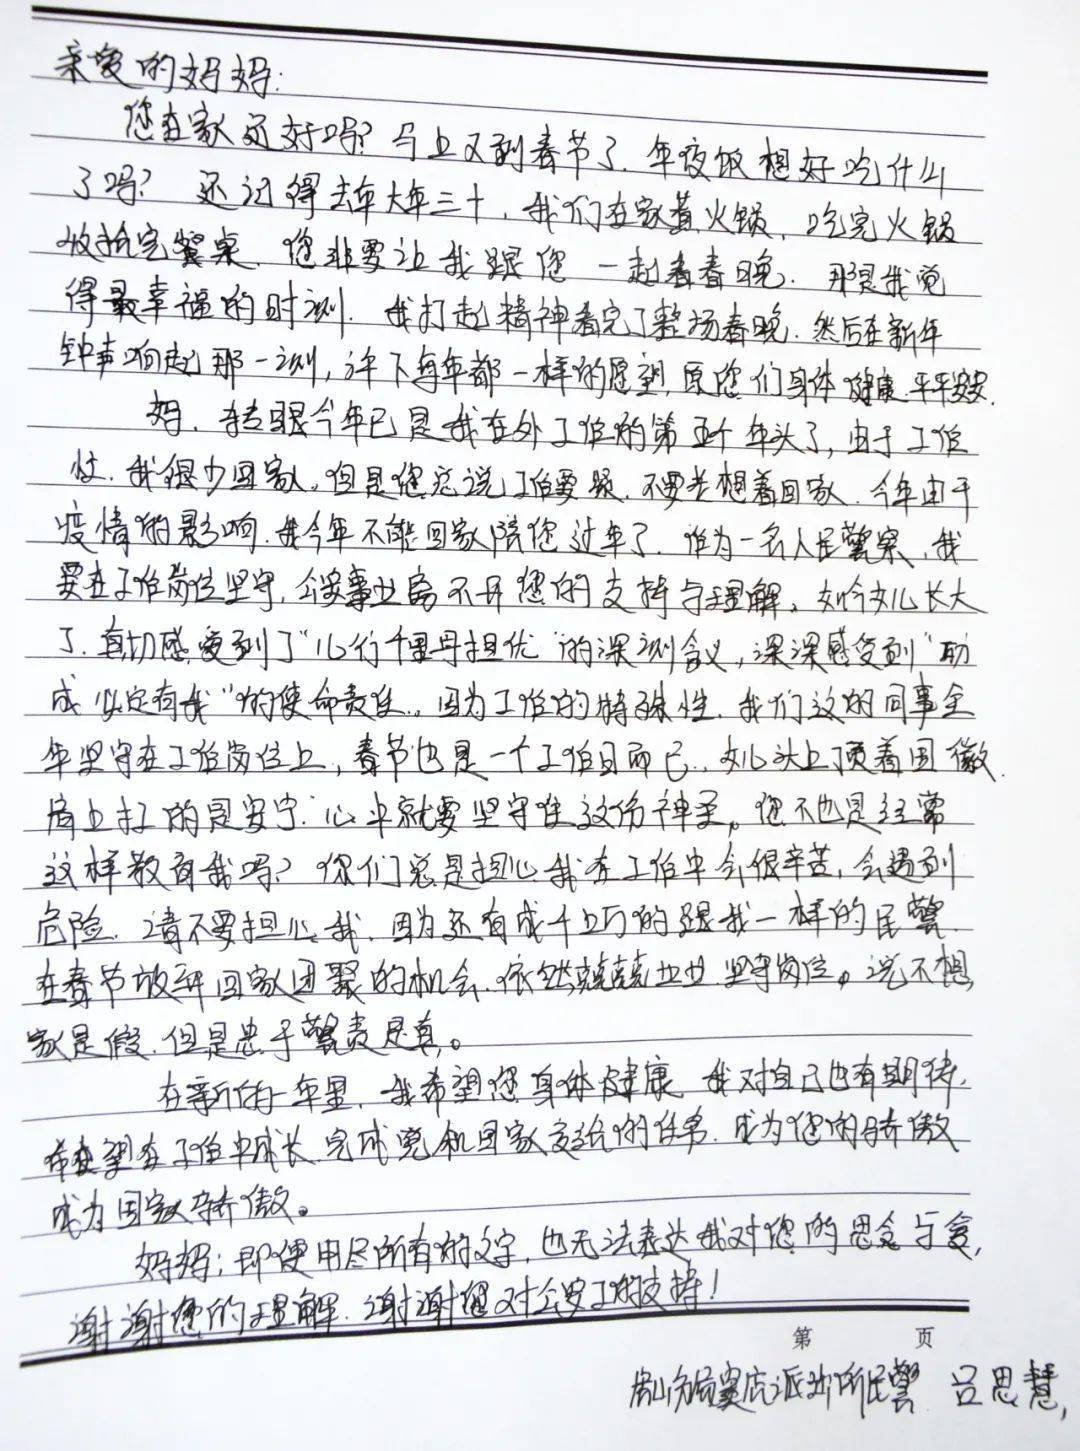 亲爱的妈妈:
您在家还好吗?马上又到春节了.年夜饭想好吃什么
了吗? 还记得去年大年三十,我们在家煮火锅,吃完火锅
收拾完餐桌.您非要让我跟您一起看春晚.那是我觉
得最幸福的时刻.我打起精神看完了整场春晚.然后在新年
钟声响起那一刻,许下每年都一样的愿望,原您们身体健康.平平安安.
妈.转眼今年已是我在外工作的第五个年头了,由于工作
忙.我很少回家.但是您总说工作要紧.不要老想着回家.今年由于
疫情的影响.我今年不能回家陪您过年了.作为一名人民警察,我
要在工作岗位坚守,公安事业离不开您的支持与理解。如今女儿长大
了.真切感受到了"儿行千里母担忧"的深刻含义,深深感受到"功
成必定有我"的使命责任.,因为工作的特殊性.我们这的同事全
年坚守在工作岗位上,春节也是一个工作日而已.,女儿头上顶着国徽.
肩上扛的是安宁.心中就要坚守住这份神圣。您不也是经常
这样教育我吗?你们总是担心我在工作中会很辛苦,会遇到
危险.请不要担心我.因为还有成千上万的跟我一样的民警.
在春节放弃回家团聚的机会.依然兢兢业业.坚守岗位。说不想
家是假.但是忠于警责是真。
在新的一年里.我希望您身体健康.我对自己也有期待.
希望在工作中成长.完成党和国家交给的任务.成为您的骄傲
成为国家骄傲。
妈妈;即使用尽所有的文字,也无法表达我对您的思念与爱,
谢谢您的理解.谢谢您对公安工的支持!
第 页
房山分局窦店派出所民警 吕思慧,